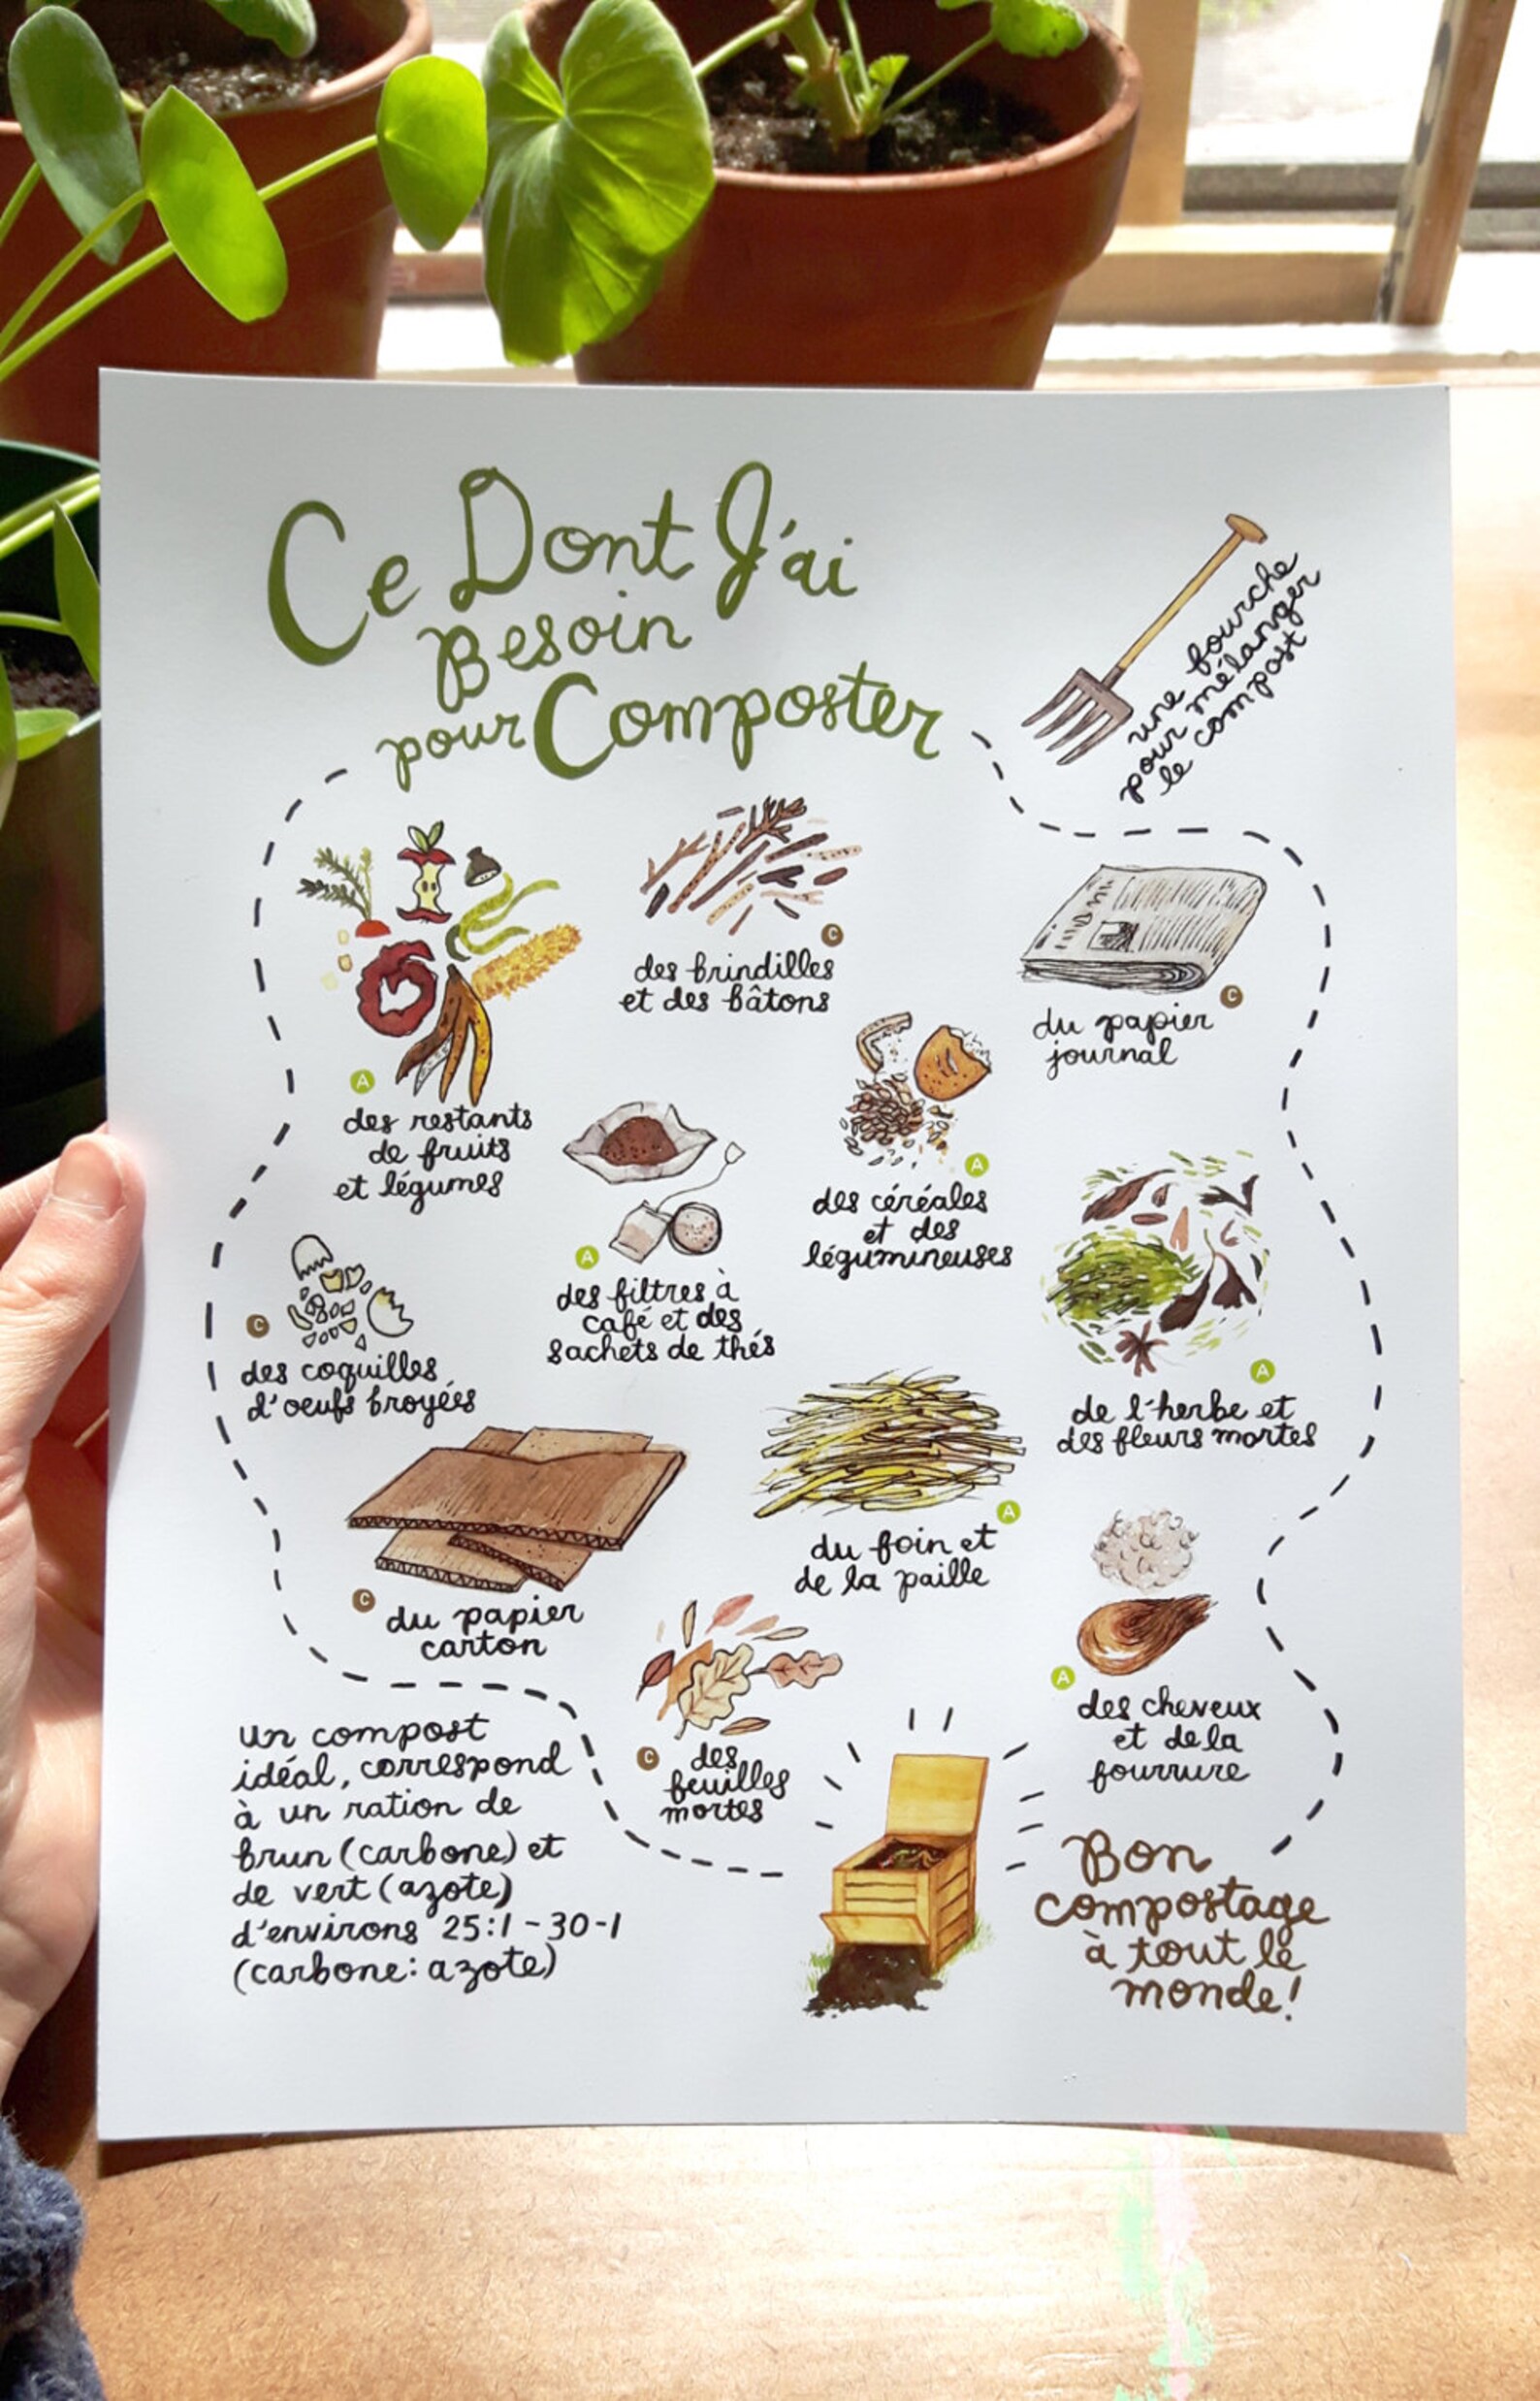 Ce Dont J'ai
Besoin
pour Composter
une fourche
pour mélanger
le compost
C
des brindilles
et des bâtons
C
du papier
journal
A
des restants
de fruits
et légumes
A
des céréales
et des
légumineuses
A
des filtres à
café et des
sachets de thés
C
des coquilles
d'oeufs broyées
A
de l'herbe et
des fleurs mortes
A
du foin et
de la paille
C
du papier
carton
A
des cheveux
et de la
fourrure
C
des
feuilles
mortes
un compost
idéal, correspond
à un ration de
brun (carbone) et
de vert (azote)
d'environs 25:1-30-1
(carbone: azote)
Bon
compostage
à tout le
monde!